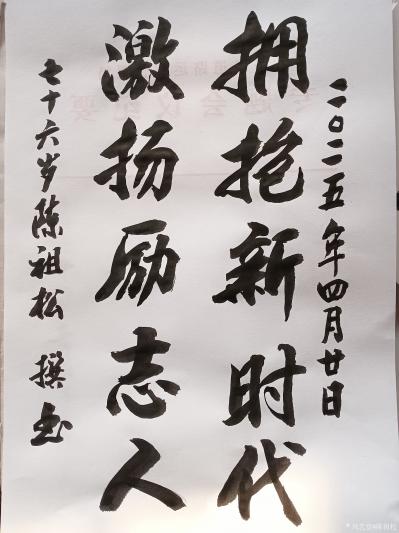 二〇二五年四月廿日
拥抱新时代
激扬励志人
七十六岁陈祖松 撰书